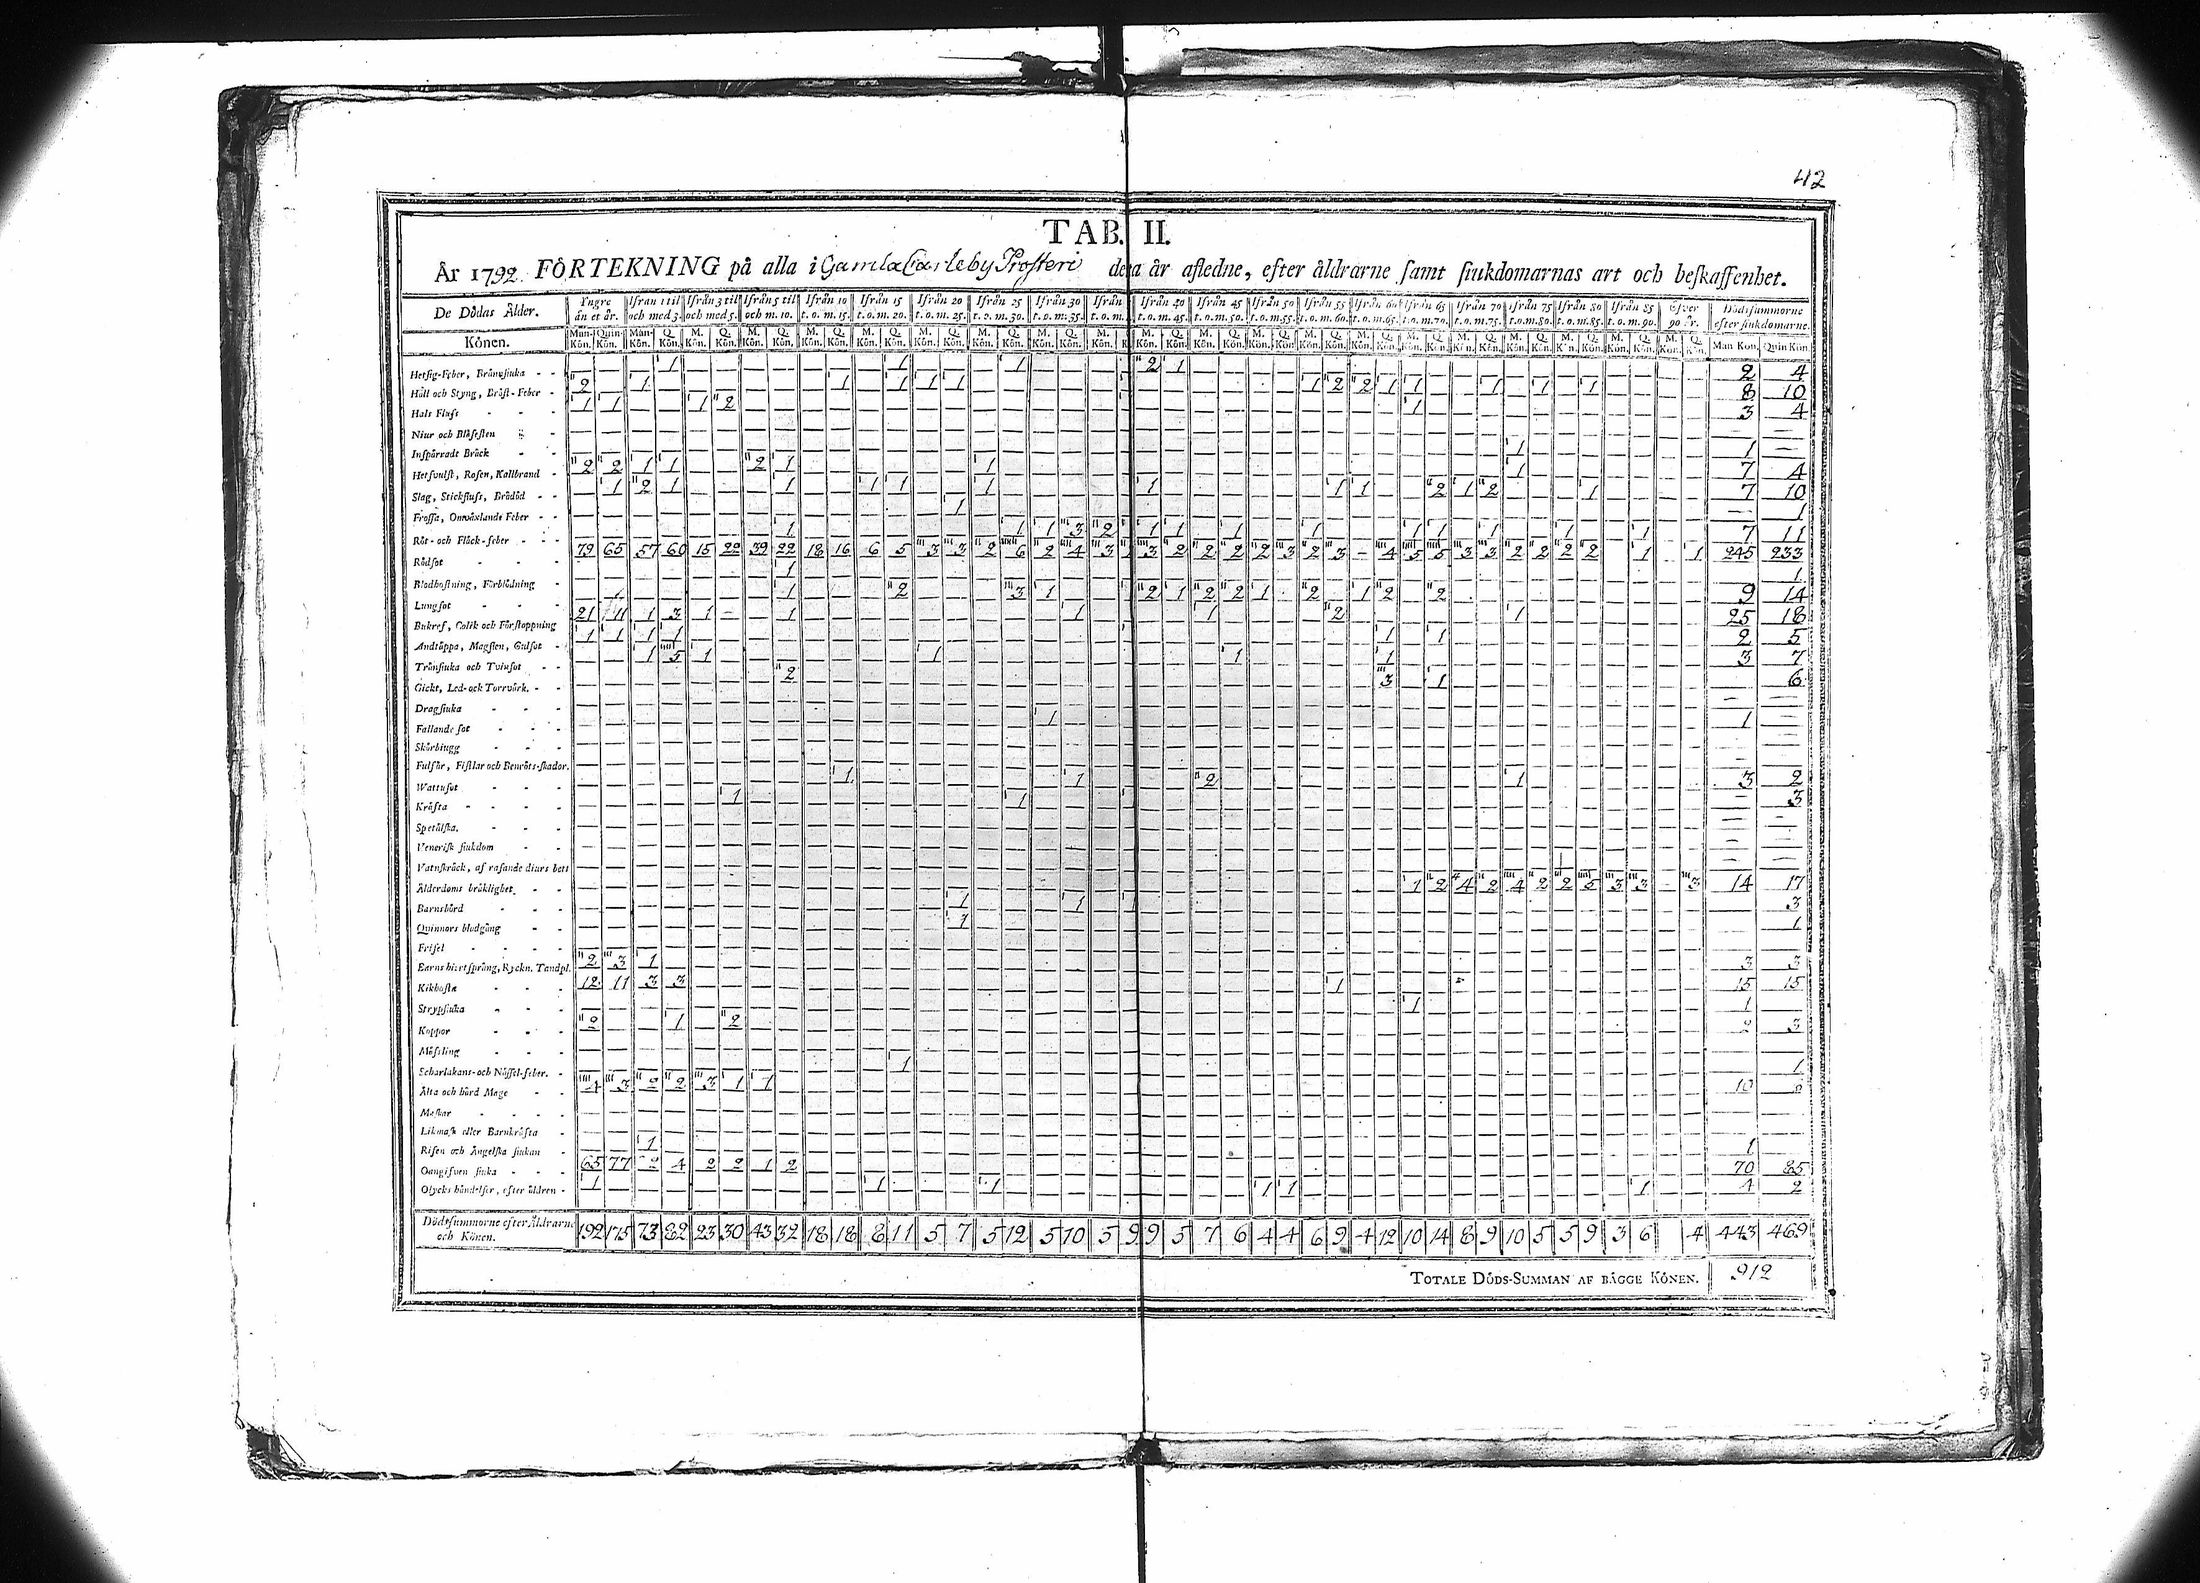 42
TAB. II.
År 1792. FÖRTEKNING på alla i Gamla Carleby Prosteri detta år afledne, efter åldrarne samt siukdomarnas art och beskaffenhet.
De Dödas Ålder. Yngre än et år. Ifrån 1 til och med 3. Ifrån 3 til och med 5. Ifrån 5 til och m. 10. Ifrån 10 t. o. m. 15. Ifrån 15 t. o. m. 20. Ifrån 20 t. o. m. 25. Ifrån 25 t. o. m. 30. Ifrån 30 t. o. m. 35. Ifrån t. o. m. Ifrån 40 t. o. m. 45. Ifrån 45 t. o. m. 50. Ifrån 50 t. o. m. 55. Ifrån 55 t. o. m. 60. Ifrån 60 t. o. m. 65. Ifrån 65 t. o. m. 70. Ifrån 70 t. o. m. 75. Ifrån 75 t. o. m. 80. Ifrån 80 t. o. m. 85. Ifrån 85 t. o. m. 90. Öfver 90 År. Dödssummorne efter siukdomarne.
Könen. Man-Kön. Quin-Kön. Man-Kön. Q. Kön. M. Kön. Q. Kön. M. Kön. Q. Kön. Man Kön. Quin Kön.
Hetsig-Feber, Brännsiuka 1 1 1 2 1 2 4
Håll och Styng, Bröst-Feber 2 1 1 1 1 1 1 2 2 1 1 1 1 1 8 10
Hals Fluss 1 1 1 2 1 3 4
Niur och Blåsesten
Inspärradt Bråck 1 1
Hetsvulst, Rosen, Kallbrand 2 2 1 1 2 1 1 1 7 4
Slag, Stickfluss, Brådöd 1 2 1 1 1 1 1 1 1 1 2 1 2 1 7 10
Frossa, Omväxlande Feber 1 1
Röt- och Fläck-feber 1 1 1 3 2 1 1 1 1 1 1 1 1 1 7 11
Rödsot 79 65 57 60 15 22 39 22 18 16 6 5 3 3 2 6 2 4 3 3 2 2 2 2 3 2 3 4 5 5 3 3 2 2 2 2 1 1 245 233
Blodhostning, Förblödning 1 1
Lungsot 1 2 3 1 2 1 2 2 1 2 1 2 2 9 14
Bukref, Colik och Förstoppning 21 11 1 3 1 1 1 1 2 1 25 18
Andtäppa, Magsten, Gulsot 1 1 1 1 1 1 2 5
Trånsiuka och Tvinsot 1 5 1 1 1 1 3 7
Gickt, Led- och Torrvärk. 2 3 1 6
Dragsiuka
Fallande sot 1 1
Skörbiugg
Fulsår, Fistlar och Benröts-skador.
Wattusot 1 1 2 1 3 2
Kräfta 1 1 3
Spetälska.
Venerisk siukdom
Vatnskräck, af rasande diurs bett
Ålderdoms bräklighet 1 2 4 2 4 2 2 5 3 3 3 14 17
Barnsbörd 1 1 1 3
Quinnors blodgång 1 1
Frisel
Barns hiertsprång, Ryckn. Tandpl. 2 3 1 3 3
Kikhosta 12 11 3 3 1 15 15
Strypsiuka 1 1
Koppor 2 1 2 2 3
Mässling
Scharlakans- och Nässel-feber. 1 1
Älta och hård Mage 4 3 2 2 3 1 1 10
Maskar
Likmask eller Barnkräfta
Risen och Ängelska siukan 1 1
Oangifven siuka 65 77 2 4 2 2 1 2 70 85
Olycks händelser, efter åldren 1 1 1 1 1 1 4 2
Dödssummorne efter Åldrarne och Könen. 192 175 73 82 23 30 43 32 18 18 8 11 5 7 5 12 5 10 5 9 9 5 7 6 4 4 6 9 4 12 10 14 8 9 10 5 5 9 3 6 4 443 469
TOTALE DÖDS-SUMMAN AF BÅGGE KÖNEN. 912